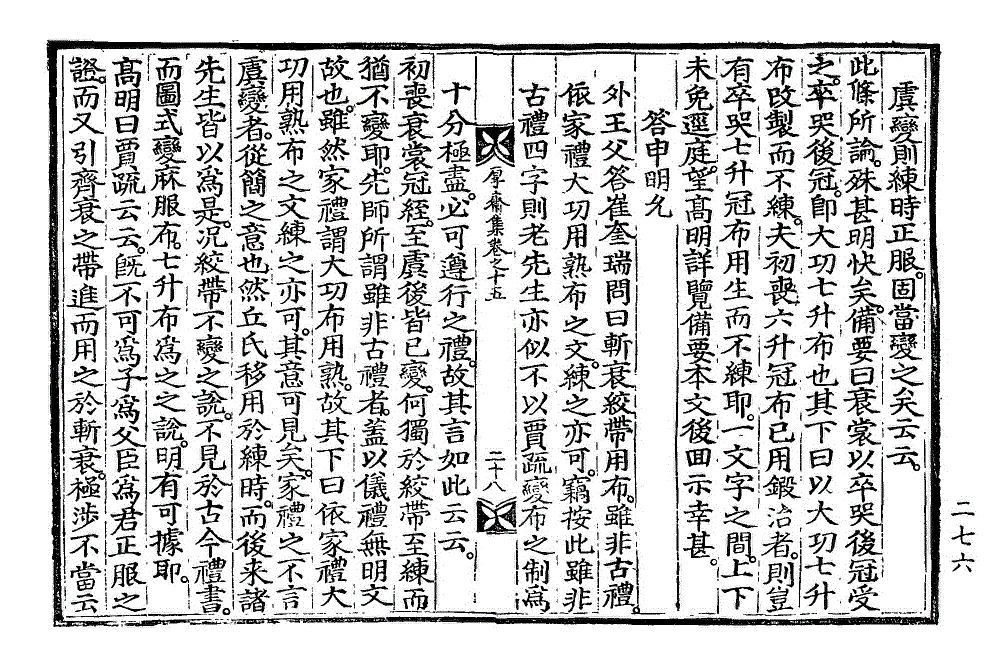 虞變則練時正服。固當變之矣云云。
此條所論。殊甚明快矣。備要曰衰裳以卒哭後冠受
之。卒哭後冠。卽大功七升布也其下曰以大功七升
布改製而不練。夫初喪六升冠布已用鍛治者。則豈
有卒哭七升冠布用生而不練耶。一文字之間。上下
未免逕庭。望高明詳覽備要本文後回示幸甚。
答申明允
外王父答崔奎瑞問曰斬衰絞帶用布。雖非古禮。
依家禮大功用熟布之文。練之亦可。竊按此雖非
古禮四字則老先生亦似不以賈疏變布之制爲
厚齋集卷之十五
二十八
十分極盡。必可遵行之禮。故其言如此云云。
初喪衰裳冠絰。至虞後皆已變。何獨於絞帶至練而
猶不變耶。先師所謂雖非古禮者。蓋以儀禮無明文
故也。雖然家禮謂大功布用熟。故其下曰依家禮大
功用熟布之文練之亦可。其意可見矣。家禮之不言
虞變者。從簡之意也然丘氏移用於練時。而後来諸
先生皆以爲是。况絞帶不變之說。不見於古今禮書。
而圖式變麻服布。七升布爲之之說。明有可據耶。
高明曰賈疏云云。旣不可爲子爲父臣爲君正服之
證。而又引齊衰之帶進而用之於斬衰。極涉不當云
二七六